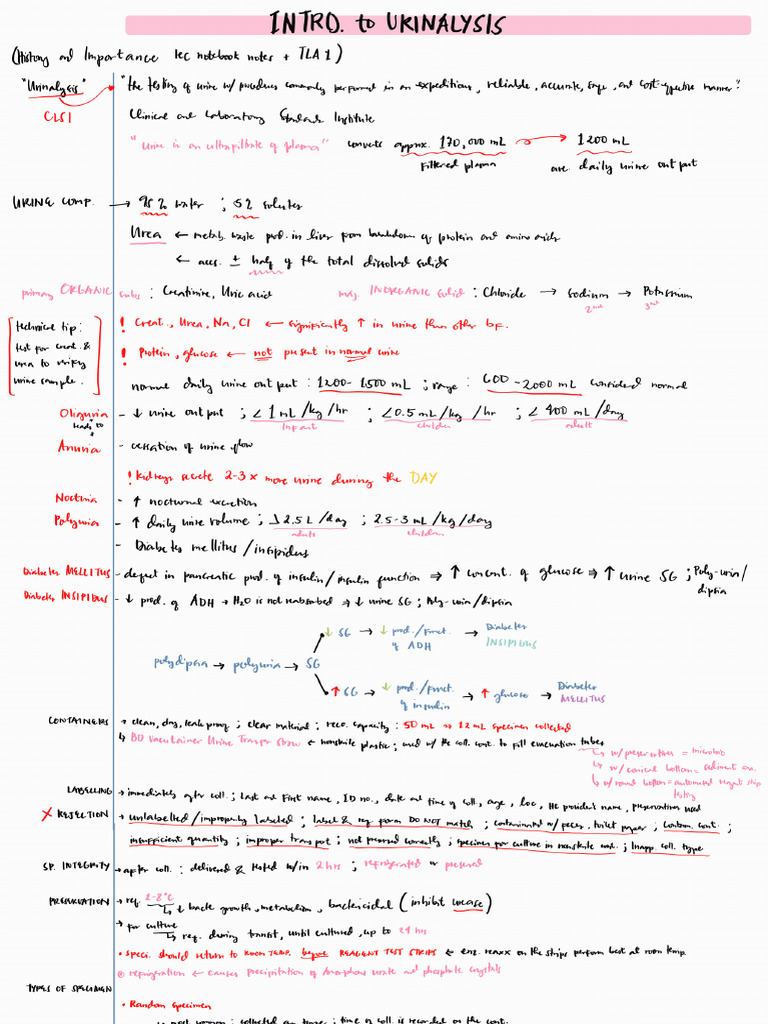 INTRO. to URINALYSIS
(History and Importance lec notebook notes + TLA 1)
"Urinalysis" "the testing of urine w/ procedures commonly performed in an expeditious, reliable, accurate, safe, and cost-effective manner."
CLSI Clinical and Laboratory Standards Institute
"Urine is an ultrafiltrate of plasma" converts approx. 170,000 mL → 1200 mL
filtered plasma ave. daily urine output
URINE COMP. → 95% water ; 5% solutes
Urea ← metab. waste prod. in liver from breakdown of protein and amino acids
← accs. ± half of the total dissolved solids
primary ORGANIC subs : Creatinine, Uric acid maj. INORGANIC solid : Chloride → Sodium → Potassium
2nd 3rd
technical tip:
test for creat. &
urea to verify
urine sample.
! Creat., Urea, Na, Cl ← significantly ↑ in urine than other bf.
! Protein, glucose ← not present in normal urine
normal daily urine output : 1200-1500 mL ; range : 600-2000 mL considered normal
Oliguria - ↓ urine output ; < 1 mL/kg/hr ; < 0.5 mL/kg/hr ; < 400 mL/day
leads to infant children adult
Anuria - cessation of urine flow
! kidneys secrete 2-3x more urine during the DAY
Nocturia - ↑ nocturnal excretion
Polyuria - ↑ daily urine volume ; > 2.5 L/day ; 2.5-3 mL/kg/day
adults children
- Diabetes mellitus/insipidus
Diabetes MELLITUS - defect in pancreatic prod. of insulin/insulin function ⇒ ↑ concent. of glucose ⇒ ↑ urine SG ; Poly-uria/
dipsia
Diabetes INSIPIDUS - ↓ prod. of ADH → H2O is not reabsorbed ⇒ ↓ urine SG ; Poly-uria/dipsia
↓ SG → ↓ prod./funct. → Diabetes
of ADH INSIPIDUS
polydipsia → polyuria → SG
↑ SG → ↓ prod./funct. → ↑ glucose → Diabetes
of insulin MELLITUS
CONTAINERS → clean, dry, leakproof ; clear material ; reco. capacity : 50 mL → 12 mL specimen collected
↳ BD Vacutainer Urine Transfer Straw ← nonsterile plastic ; used w/ the coll. cont. to fill evacuation tubes
↳ w/ preservatives = microbio
↳ w/ conical bottom = sediment
↳ w/ round bottom = automated reagent strip
testing
LABELLING → immediately after coll. ; last and First name, ID no., date and time of coll., age, loc, HC provider's name, preservatives used
X REJECTION → unlabelled/improperly labeled ; label & req. form DO NOT match ; contaminated w/ feces, toilet paper ; contam. cont. ;
insufficient quantity ; improper transport ; not preserved correctly ; specimen for culture in nonsterile cont. ; Inapp. coll. type
SP. INTEGRITY → after coll. : delivered & tested w/in 2 hrs ; refrigerated or preserved
PRESERVATION → ref. 2-8°C
↳ ↓ bacte growth, metabolism, bactericidal (inhibit urease)
→ for culture
↳ ref. during transit, until cultured, up to 24 hrs
• speci. should return to ROOM TEMP. before REAGENT TEST STRIPS ← enz. reaxx on the strips perform best at room temp.
refrigeration ← causes precipitation of Amorphous urate and phosphate crystals
TYPES OF SPECIMEN
• Random Specimen
→ most common ; collected any time ; time of coll. is recorded on the cont.